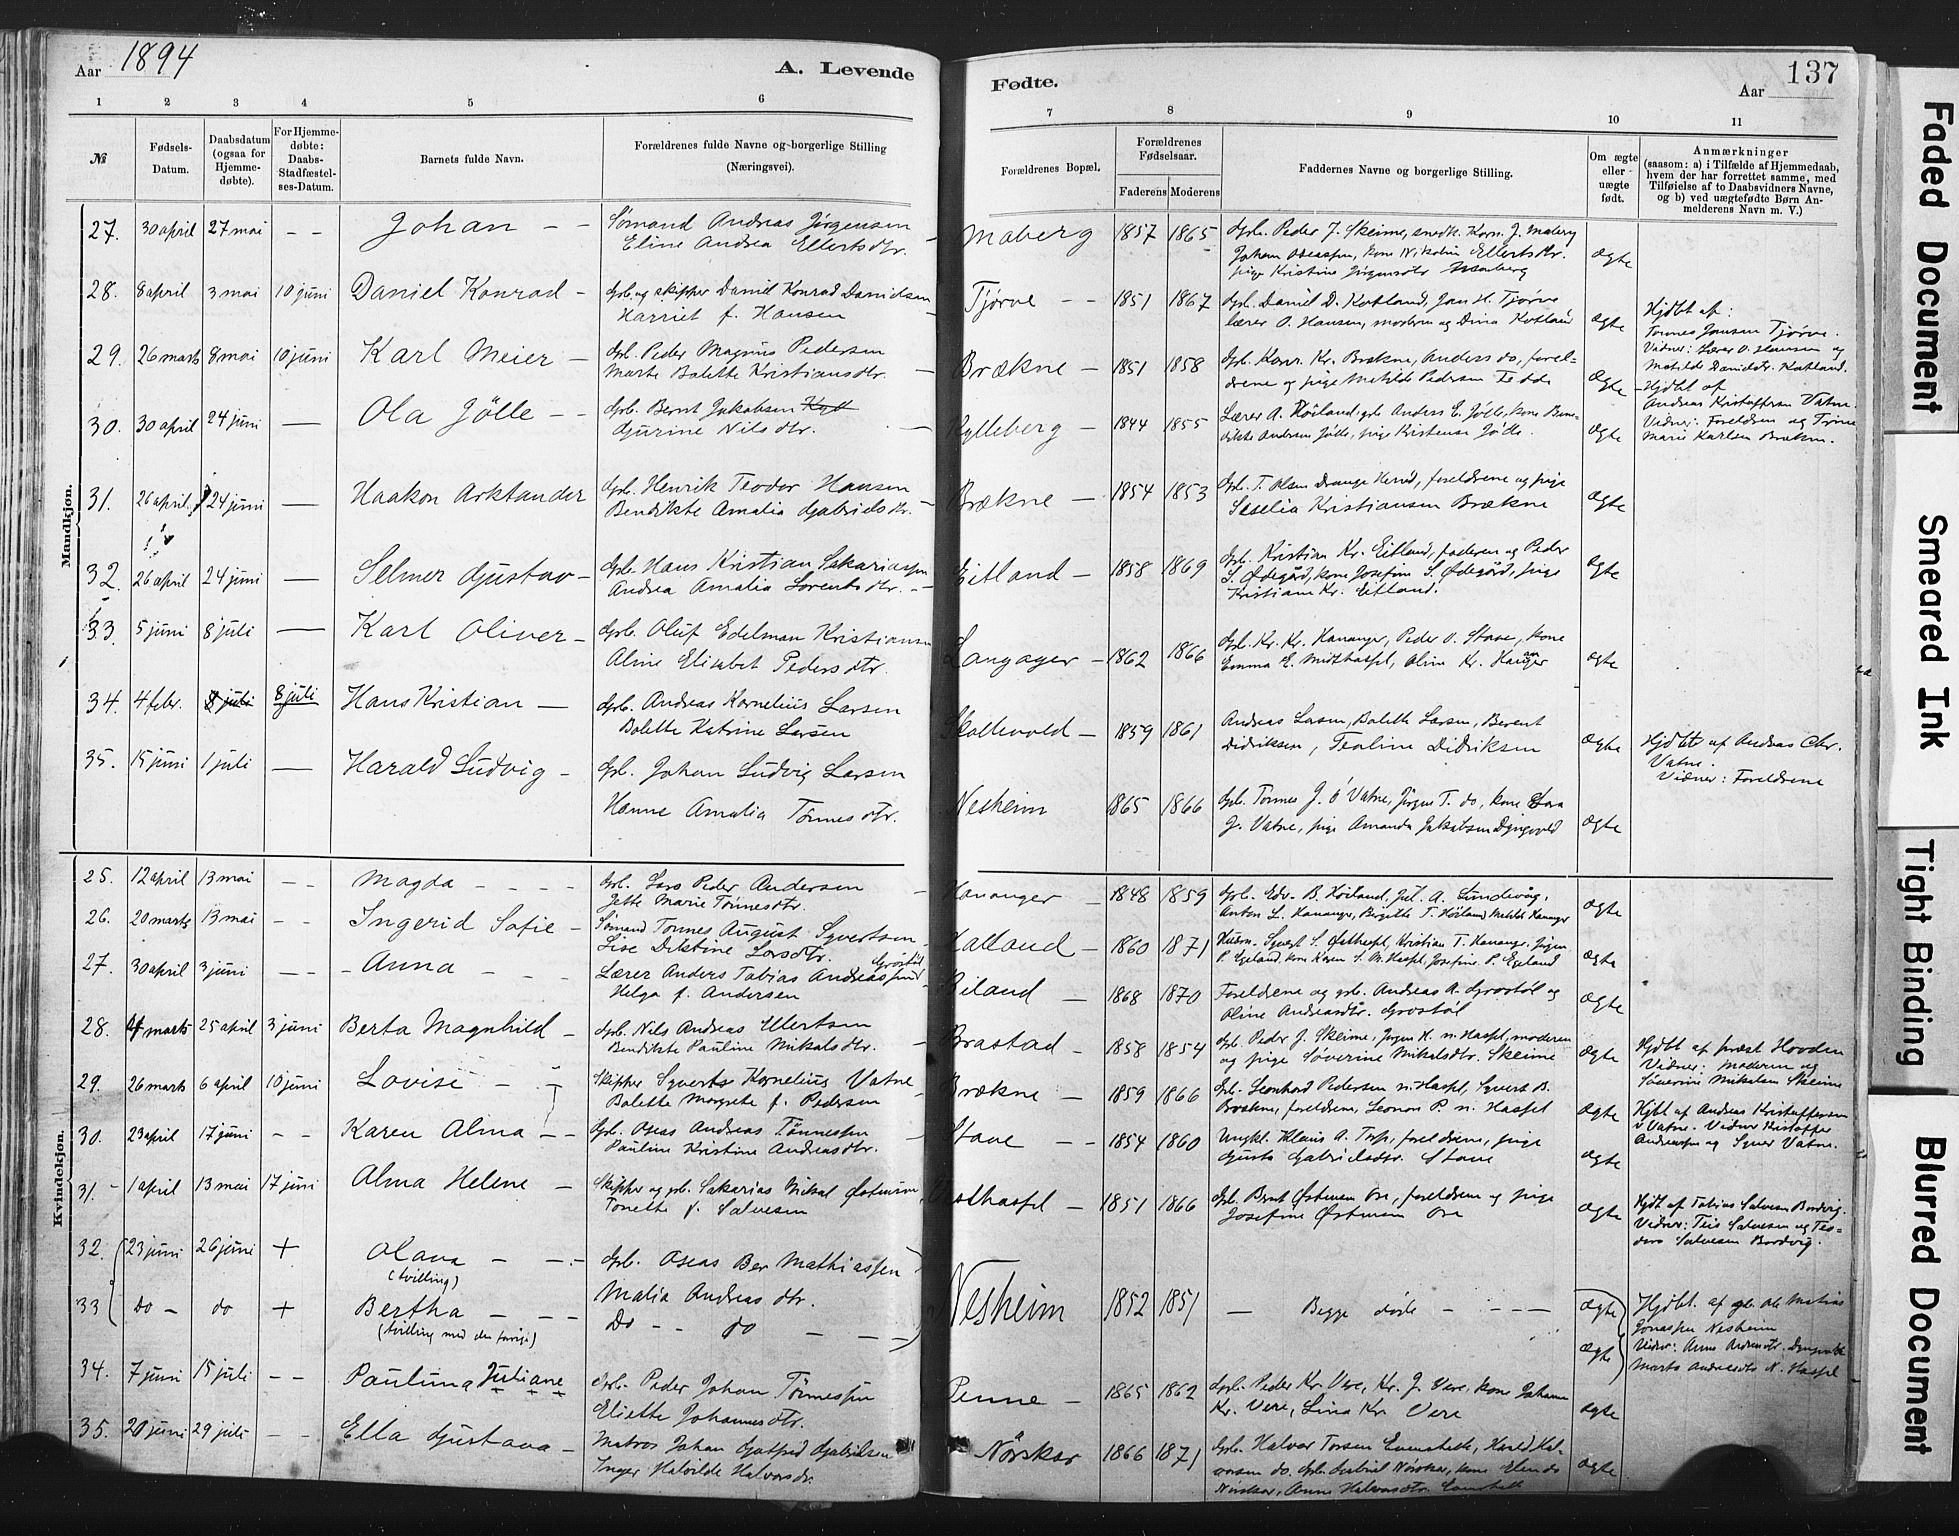 Aar 1894
A. Levende
1 2 3 4 5 6
№
Fødsels-Datum.
Daabsdatum (ogsaa for Hjemme-døbte).
For Hjemme-døbte: Daabs-Stadfæstel-ses-Datum.
Barnets fulde Navn.
Forældrenes fulde Navne og borgerlige Stilling
(Næringsvei).
Mandkjøn.
27. 30 april 27 mai – – Johan – – Sømand Andreas Jørgensen
Eline Andrea Ellertsdtr.
28. 8 april 3 mai 10 juni Daniel Konrad – Gbr. og skipper Daniel Konrad Danielsen
Harriet f. Hansen
29. 26 marts 8 mai 10 juni Karl Meier – Gbr. Peder Magnus Pedersen
Marte Bolette Kristiansdtr.
30. 30 april 24 juni — Ola Jölle – – Gbr. Bernt Jakobsen
Gjurine Nilsdtr.
31. 26 april 24 juni — Haakon Arktander Gbr. Henrik Teodor Hansen
Bendikte Amalia Gabrielsdtr.
32. 26 april 24 juni — Selmer Gustav – Gbr. Hans Kristian Sakariassen
Andrea Amalia Lorentsdtr.
33. 5 juni 8 juli — Karl Oliver – Gbr. Oluf Edelman Kristiansen
Aline Elisabet Pedersdtr.
34. 4 febr. 8 juli 8 juli Hans Kristian — Gbr. Andreas Kornelius Larsen
Bolette Katrine Larsen
35. 15 juni 1 juli — Harald Ludvig – Gbr. Johan Ludvig Larsen
Hanne Amalia Tönnesdtr.
Kvindekjøn.
25. 12 april 13 mai – – Magda – – – – Gbr. Lars Peder Andersen
Jette Marie Tönnesdtr.
26. 20 marts 13 mai – – Ingerid Sofie – Sømand Tønnes August Syvertsen
Lise Dilstine Larsdtr.
27. 30 april 3 juni – – – Anna – – – Lærer Anders Tobias Andreassen Grostöl
Helga f. Andersen
28. 4 marts 25 april 3 juni Berta Magnhild – Gbr. Nils Andreas Ellertsen
Bendikte Pauline Mikalsdtr.
29. 26 marts 6 april 10 juni Lovise – – Skipper Syverts Kornelius Vatne
Bolette Margrete f. Pedersen
30. 23 april 17 juni – – Karen Alma – – Gbr. Oseas Andreas Tönnessen
Pauline Kristine Andreasdtr.
31. 1 april 13 mai 17 juni Alma Helene – Skipper og gbr. Sakarias Mikal Østensen
Tonette f. Salvesen
32. 23 juni 26 juni + Olava – – Gbr. Oseas Ber Mathiassen
(tvilling)
Malia Andreasdtr.
33 do – do + Bertha – – – Do – – do – –
(tvilling med den forrige)
34. 7 juni 15 juli – – Paulina Juliane Gbr. Peder Johan Tönnessen
Eliette Johannesdtr.
35. 20 juni 29 juli – – Ella Gustava – Matros Johan Gotfred Gabrielsen
Inger Halvilde Halvorsdr.
Fødte.
Aar
137
7 8 9 10 11
Forældrenes Bopæl.
Forældrenes Fødselsaar.
Faderens Moderens
Faddernes Navne og borgerlige Stilling.
Om ægte eller uægte født.
Anmærkninger
(saasom: a) i Tilfælde af Hjemmedaab,
hvem der har forrettet samme, med
Tilføielse af to Daabsvidners Navne,
og b) ved uægtefødte Børn An-
melderens Navn m. V.)
Maberg 1857 1865 Gbr. Peder J. Skeime, snedk. Korn. J. Maberg
Johan Oseassen, kone Nikoline Ellertsdtr.
pige Kristine Jørgensdtr Maberg ægte
Tjørve – – 1851 1867 Gbr. Daniel D. Kotland, Jon H. Tjørve
lærer O. Hansen, moderen og Dina Kotland ægte
Hjdbt af:
Tønnes Jonsen Tjørve.
Vidner: Lærer O. Hansen og
Matilde Danielsdtr. Kotland.
Brækne – 1851 1858 Gbr. Korn. Kr. Brækne, Anders do, forel-
drene og pige Matilde Pedersen Tedde ægte
Hjdbt af
Andreas Kristoffersen Vatne.
Vidner: Foreldrene og Trine
Marie Karlsen Brækne.
Kylleberg – 1844 1855 Lærer A. Höiland, gbr Anders E. Jölle, kone Ben-
dikte Andersen Jölle, pige Kristense Jölle. ægte
Brækne – 1854 1853 Gbr. T. Olsen Drange Herud, foreldrene og pige
Seselia Kristiansen Brækne ægte
Eitland – 1858 1869 Gbr. Kristian Kr. Eitland, faderen og Peder
S. Ødegård, kone Josefine S. Ødegård, pige
Kristiane Kr. Eitland. ægte
Langager – 1862 1866 Gbr. Kr. Kr. Hananger, Peder O. Stave, kone
Emma E. Midthassel, Aline Kr. Hananger ægte
Skollevold – 1859 1861 Andreas Larsen, Bolette Larsen, Berent
Didriksen, Tealine Didriksen ægte
Hjdbt af Andreas Chr.
Vatne.
Vidner: Foreldrene
Nesheim 1865 1866 Gbr. Tønnes J. Ö Vatne, Jørgen T. do, kone
J. Vatne, pige Amanda Jakobsen Dyngvold ægte
Hananger – 1848 1859 Gbr. Edv. B. Höiland, Jul. A. Lundevåg,
Anton L. Hananger, Birgitte T. Höiland, Matilde Hananger ægte
Halland – 1860 1871 Husm. Syvert S. Østhassel, Kristian T. Hananger, Jørgen
P. Egeland, kone Karen S. M. Hassel, Josefine P. Egeland ægte
Biland – 1868 1870 Foreldrene og gbr. Andreas A. Grostöl og
Oline Andreasdtr. Grostöl ægte
Brastad – 1858 1854 Gbr. Peder J. Skeime, Jørgen H. n. Hassel, moderen
og pige Severine Mikalsdtr. Skeime ægte
Hjdbt af præst Hovden
Vidner: moderen og
Severine Mikalsen Skeime
Brækne – 1859 1866 Gbr. Leonhard Pedersen n. Hassel, Syvert B.
Brækne, foreldrene, Leonor P. n. Hassel ægte
Hjbt af Andreas Kristoffersen
Ö Vatne. Vidner Kristoffer
Andreassen og Syver Vatne.
Stave – – 1854 1860 Ungkl. Klaus A. Torp, foreldrene, pige
Gusta Gabrielsdtr. Stave ægte
Østhassel – 1851 1866 Gbr. Bernt Østensen Ore, foreldrene og pige
Josefine Østensen Ore ægte
Hjdt af Tobias Salvesen Bordvig.
Vidner: Teis Salvesen og Teo-
dora Salvesen Bordvig.
Nesheim 1852 1851 — Begge døde – – – – ægte
ægte
Hjdbt. af gbr. Ole Matias
Jonassen Nesheim
Vidner: Anne Andreasdtr. Dyngvold
Marta Andreasdtr N. Hassel
Penne – 1865 1862 Gbr. Peder Kr. Vere, Kr. J. Vere, kone Johanne
Kr. Vere, Lina Kr. Vere ægte
Nörskar 1866 1871 Gbr. Halvor Torsen Lunstedt, Harald Hal-
vorsen do. Gbr. Gabriel Nörskar, kone Elen do
Nörskar, Anne Halvorsdtr. ægte
Faded Document
Smeared Ink
Tight Binding
Blurred Document